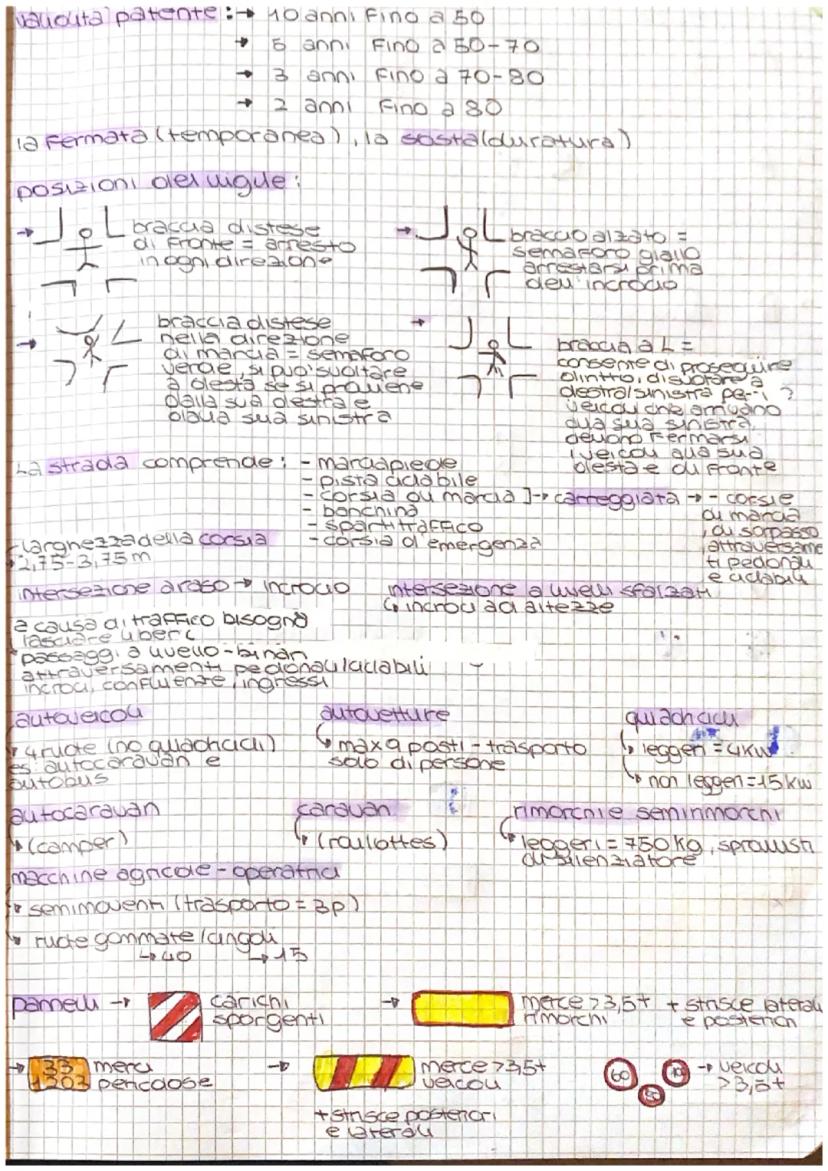 validita' patente: → 10 anni Fino a 50
→ 5 anni Fino a 50-70
→ 3 anni Fino a 70-80
→ 2 anni Fino a 80
la Fermata (temporanea), la sosta (duratura)
posizioni del vigile:
→ braccia distese
di Fronte = arresto
in ogni direzione
→ braccio alzato =
semaforo giallo
arrestarsi prima
dell'incrocio
→ braccia distese
nella direzione
di marcia = semaforo
verde, si puo' svoltare
a destra se si proviene
dalla sua destra e
dalla sua sinistra
→ braccia a L =
consente di proseguire
diritto, di svoltare a
destra/sinistra per i ?
veicoli che arrivano
alla sua sinistra,
devono Fermarsi
i veicoli alla sua
destra e di Fronte
La strada comprende: - marciapiede
- pista ciclabile
- corsia di marcia ]→ carreggiata → - corsie
di marcia
, di sorpasso
, attraversame
ti pedonali
e ciclabili
- banchina
- spartitraffico
- corsia d'emergenza
- larghezza della corsia
2,75-3,75 m
intersezione a raso → incrocio
intersezione a livelli sfalzati
↳ incroci ad altezze
a causa di traffico bisogna
lasciare liberi
passaggi a livello - binari
attraversamenti pedonali/ciclabili
incroci, confluenze, ingressi
autoveicoli
↳ 4 ruote (no quadricicli)
es: autocaravan e
autobus
autovetture
↳ max 9 posti - trasporto
solo di persone
quadricicli
↳ leggeri = 4KW
↳ non leggeri = 15 kw
autocaravan
↳ (camper)
caravan
↳ (roulottes)
rimorchi e semirimorchi
↳ leggeri = 750 KG, sprovvisti
di silenziatore
macchine agricole - operatrici
↳ semimoventi (trasporto = 3p)
↳ ruote gommate/cingoli
↳ 40 ↳ 15
pannelli → carichi
sporgenti
→ merce > 3,5t + strisce laterali
rimorchi e posteriori
→ 33
1203
merci
pericolose
→ merce > 3,5t
veicoli
+ strisce posteriori
e laterali
60
→ veicoli
> 3,5t